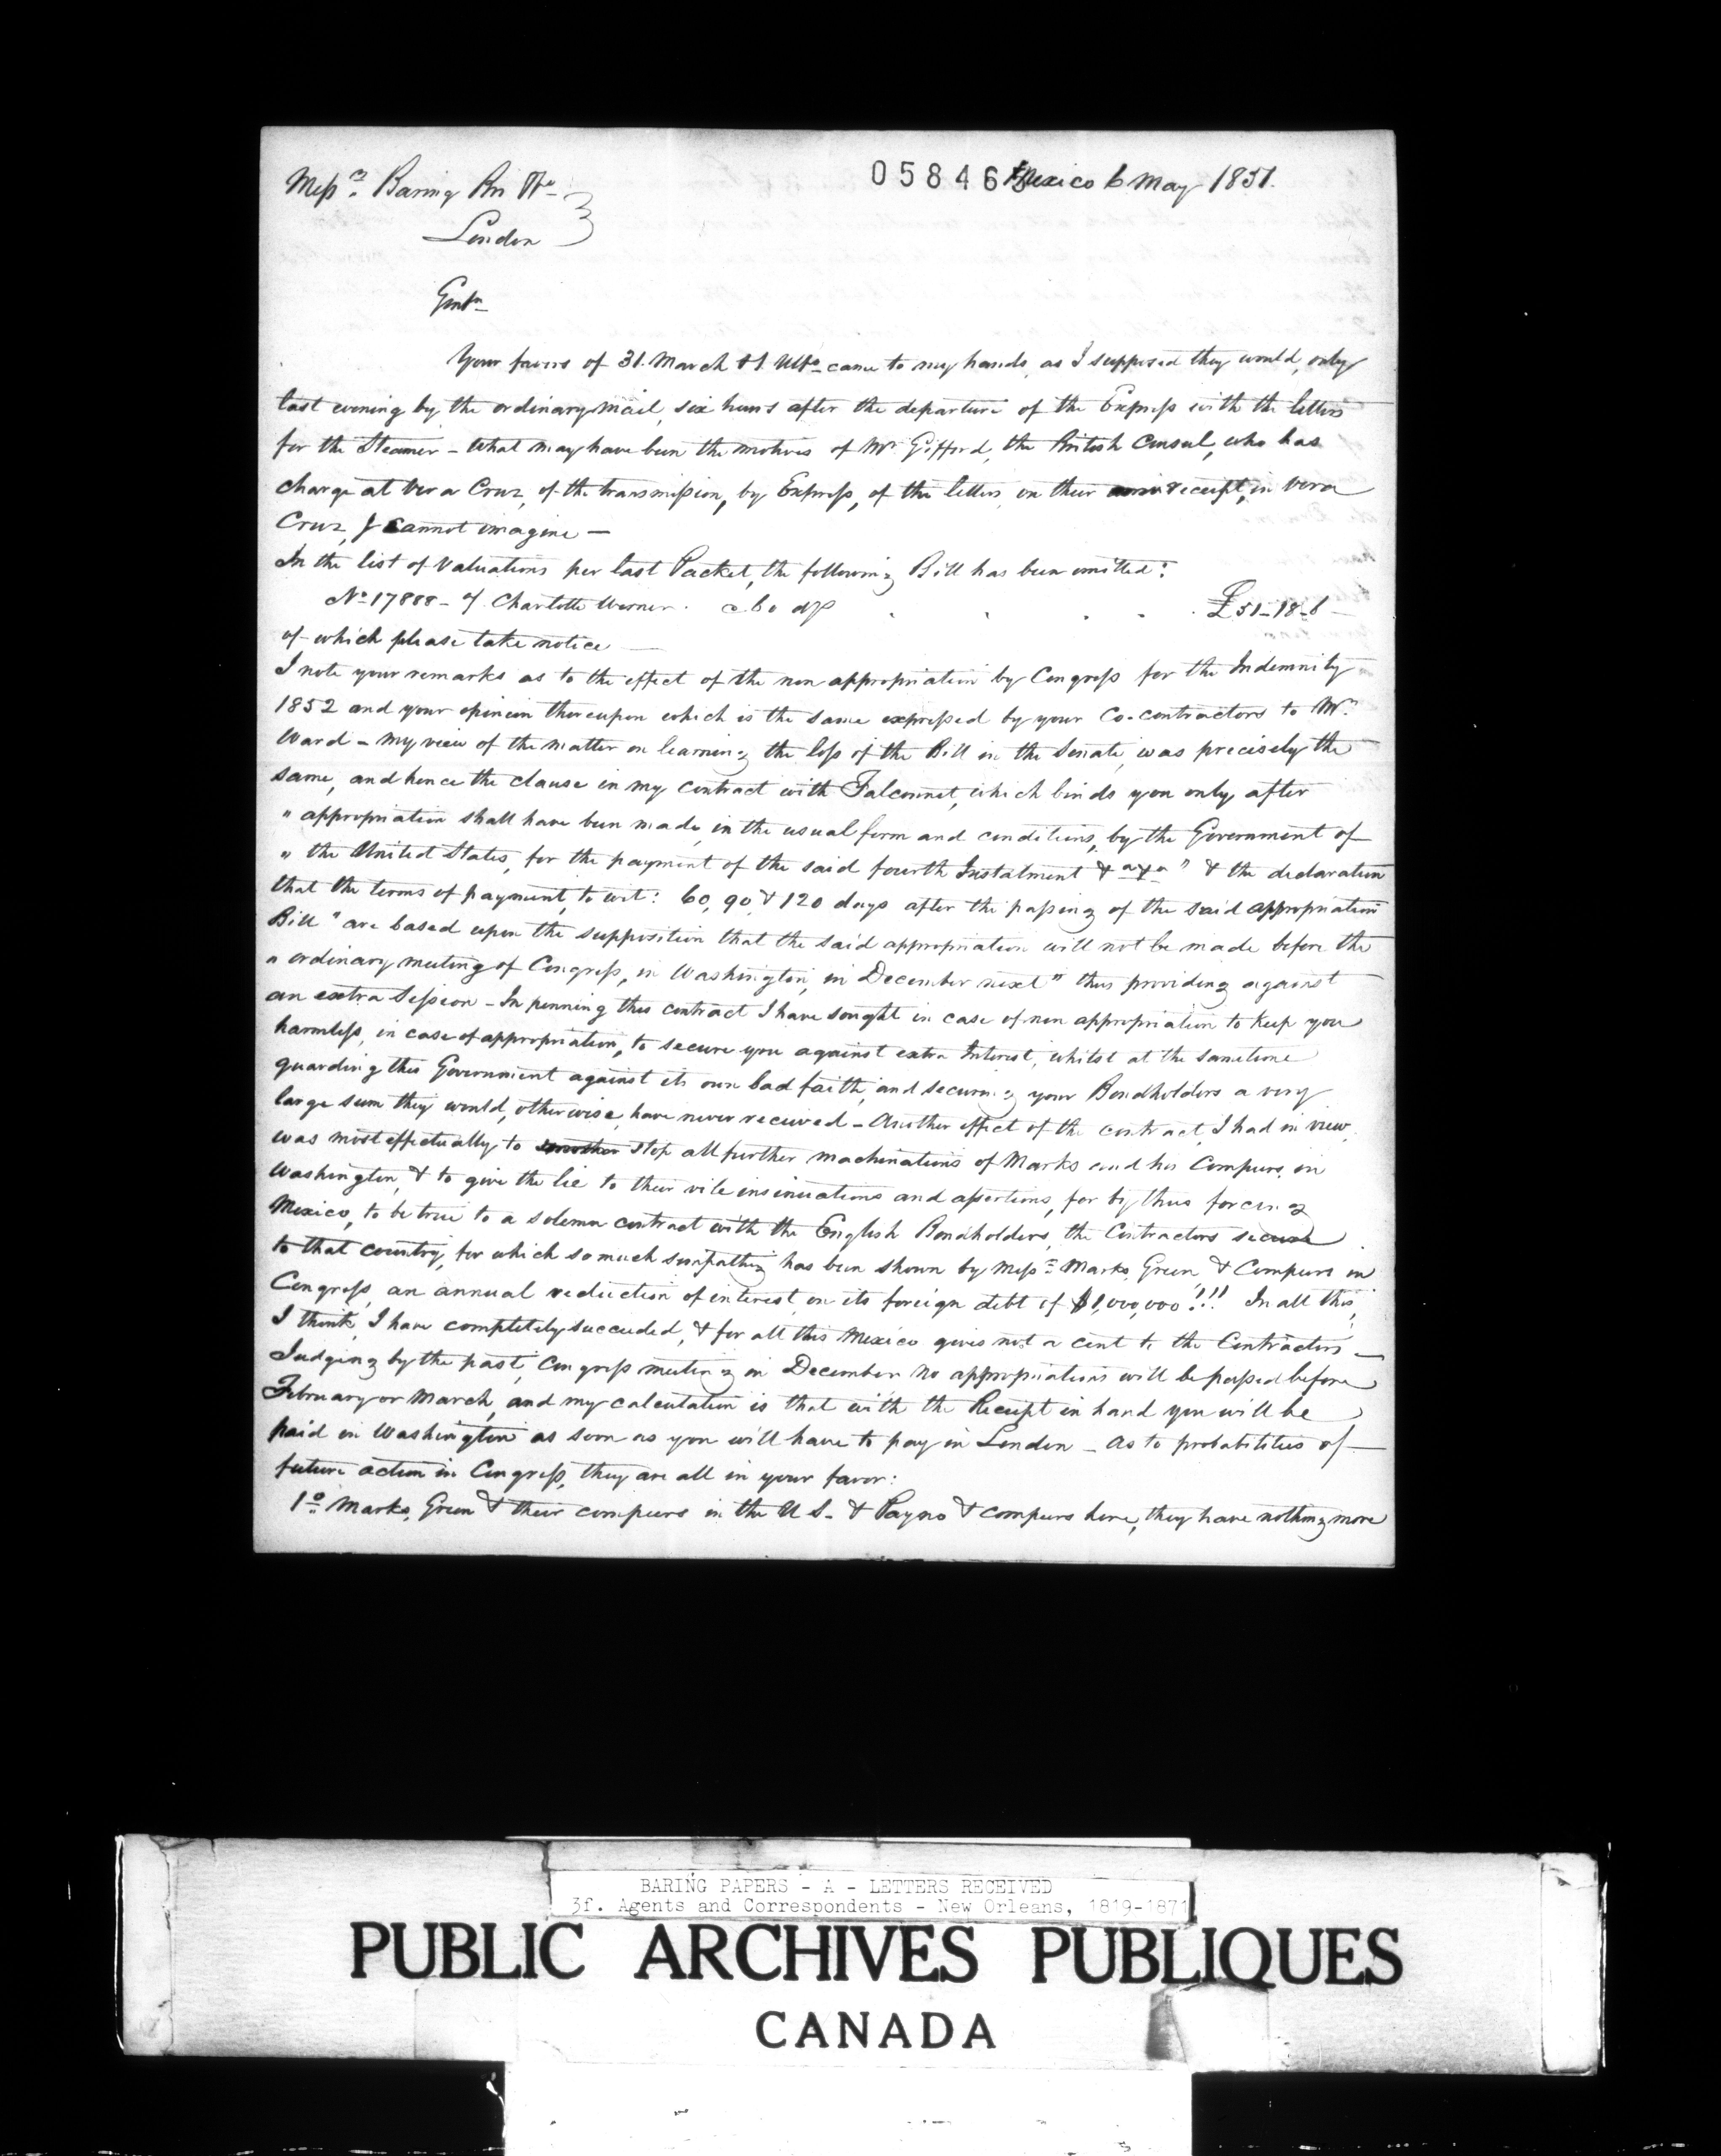 Messrs. Baring Bros & Co
London
058463 Mexico 6 May 1851.
Gentn
Your favors of 31. March & 1. Ulto came to my hands, as I supposed they would, only
last evening by the ordinary mail, six hours after the departure of the Express with the letters
for the Steamer – What may have been the motives of Mr Gifford, the British Consul, who has
charge at Vera Cruz, of the transmission, by Express, of the letters on their receipt, in Vera
Cruz, I cannot imagine –
In the list of Valuations per last Packet, the following Bill has been omitted:
No 17888 - of Charlotte Werner. @ 60 d/ . . . . £51-18-6
of which please take notice
I note your remarks as to the effect of the non appropriation by Congress for the Indemnity
1852 and your opinion thereupon which is the same expressed by your Co-contractors to Mr.
Ward – my view of the matter on learning the loss of the Bill in the Senate, was precisely the
same, and hence the clause in my contract with Falconnet, which binds you only after
" appropriation shall have been made, in the usual form and conditions, by the Government of
" the United States, for the payment of the said fourth Instalment &a &a " & the declaration
that the terms of payment, to wit: 60, 90 & 120 days after the passing of the said appropriation
Bill " are based upon the supposition that the said appropriation will not be made before the
" ordinary meeting of Congress, in Washington, in December next " thus providing against
an extra Session – In penning this contract I have sought in case of non appropriation to keep you
harmless, in case of appropriation, to secure you against extra Interest, whilst at the sametime
guarding this Government against its own bad faith, and securing your Bondholders a very
large sum they would, otherwise, have never received – Another effect of the contract, I had in view,
was most effectually to stop all further machinations of Marks and his Compeers in
Washington, & to give the lie to their vile insinuations and assertions, for by thus forcing
Mexico, to be true to a solemn contract with the English Bondholders, the Contractors secure
to that country, for which so much sympathy has been shown by Messrs Marks, Green & Compeers in
Congress, an annual reduction of interest on its foreign debt of $1,000,000!!! In all this,
I think, I have completely succeeded, & for all this Mexico gives not a cent to the Contractors –
Judging by the past, Congress meeting in December no appropriations will be passed before
February or March, and my calculation is that with the Receipt in hand you will be
paid in Washington as soon as you will have to pay in London – As to probabilities of
future action in Congress, they are all in your favor:
1o Marks, Green & their compeers in the U S. & Payno & compeers here, they have nothing more
BARING PAPERS - A - LETTERS RECEIVED
3f. Agents and Correspondents - New Orleans, 1819-1871
PUBLIC ARCHIVES PUBLIQUES
CANADA